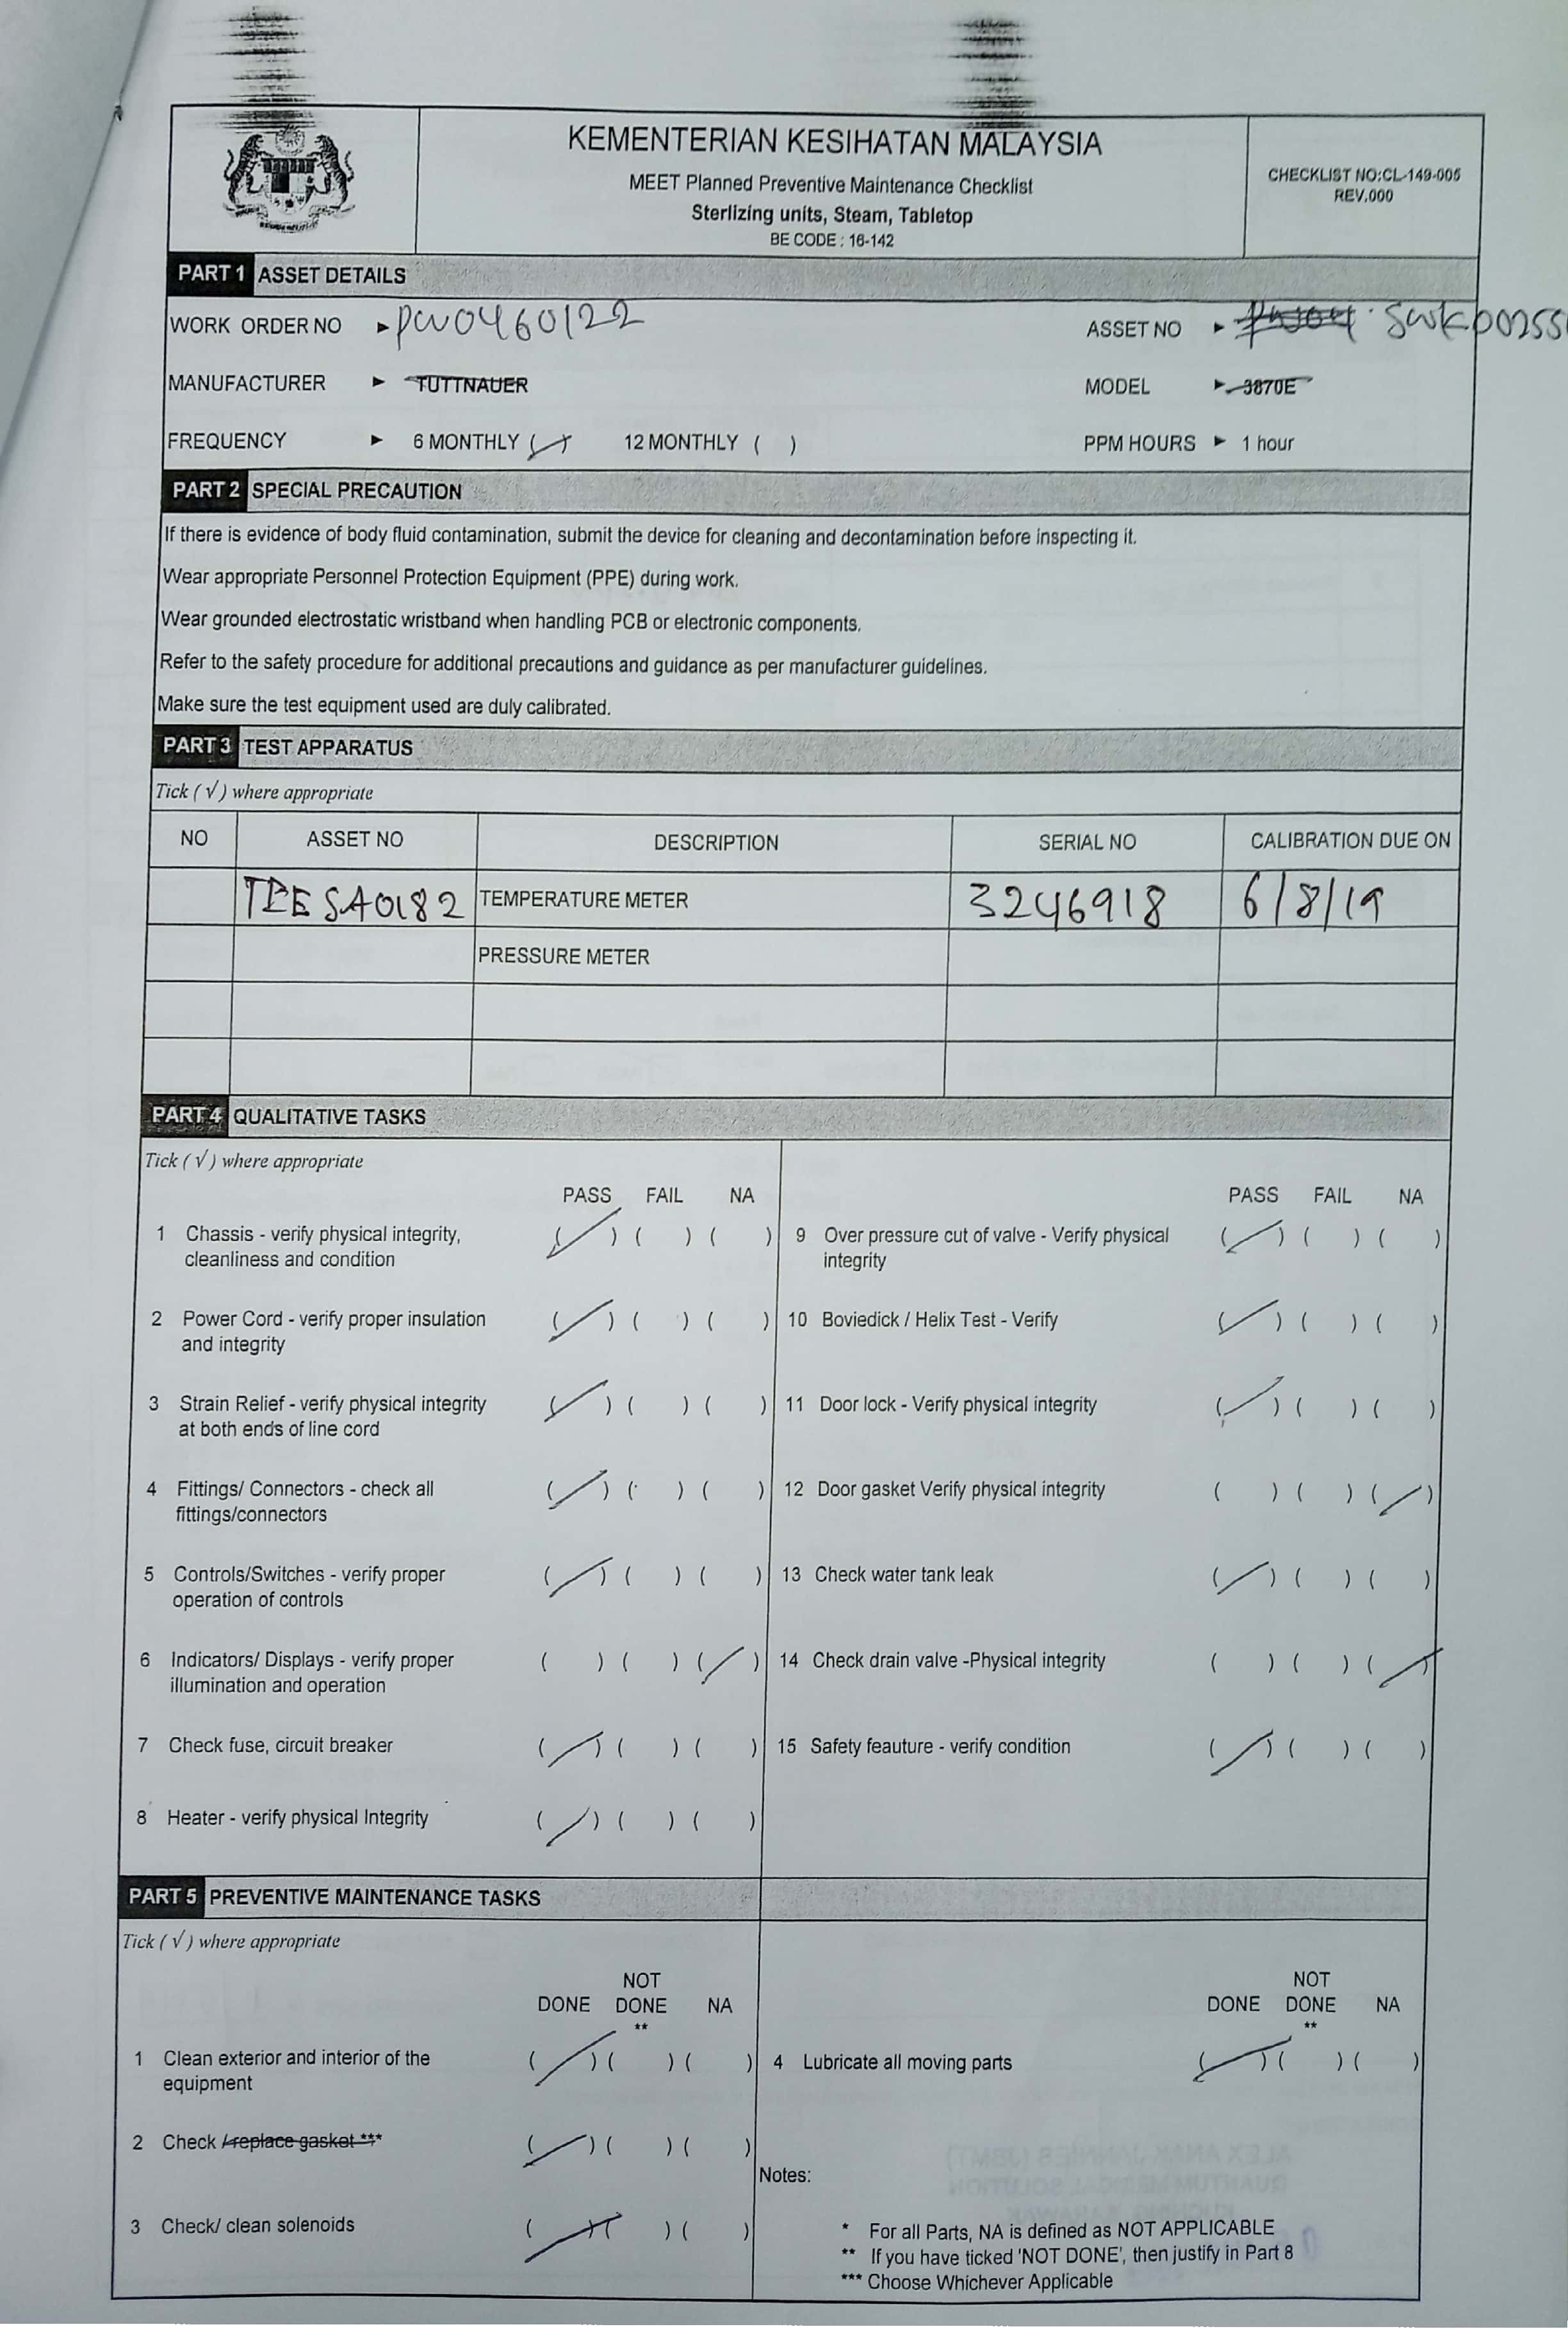 KEMENTERIAN KESIHATAN MALAYSIA
MEET Planned Preventive Maintenance Checklist
Sterlizing units, Steam, Tabletop
BE CODE : 16-142
CHECKLIST NO:CL-149-005
REV.000
PART 1 ASSET DETAILS
WORK ORDER NO ► PW0460122 ASSET NO ► SWK00255
MANUFACTURER ► TUTTNAUER MODEL ► 3870E
FREQUENCY ► 6 MONTHLY (✓) 12 MONTHLY ( ) PPM HOURS ► 1 hour
PART 2 SPECIAL PRECAUTION
If there is evidence of body fluid contamination, submit the device for cleaning and decontamination before inspecting it.
Wear appropriate Personnel Protection Equipment (PPE) during work.
Wear grounded electrostatic wristband when handling PCB or electronic components.
Refer to the safety procedure for additional precautions and guidance as per manufacturer guidelines.
Make sure the test equipment used are duly calibrated.
PART 3 TEST APPARATUS
Tick ( √ ) where appropriate
NO ASSET NO DESCRIPTION SERIAL NO CALIBRATION DUE ON
TBESA0182 TEMPERATURE METER 3246918 6/8/19
PRESSURE METER
PART 4 QUALITATIVE TASKS
Tick ( √ ) where appropriate
PASS FAIL NA
1 Chassis - verify physical integrity, (✓) ( ) ( )
cleanliness and condition
2 Power Cord - verify proper insulation (✓) ( ) ( )
and integrity
3 Strain Relief - verify physical integrity (✓) ( ) ( )
at both ends of line cord
4 Fittings/ Connectors - check all (✓) ( ) ( )
fittings/connectors
5 Controls/Switches - verify proper (✓) ( ) ( )
operation of controls
6 Indicators/ Displays - verify proper ( ) ( ) (✓)
illumination and operation
7 Check fuse, circuit breaker (✓) ( ) ( )
8 Heater - verify physical Integrity (✓) ( ) ( )
PASS FAIL NA
9 Over pressure cut of valve - Verify physical (✓) ( ) ( )
integrity
10 Boviedick / Helix Test - Verify (✓) ( ) ( )
11 Door lock - Verify physical integrity (✓) ( ) ( )
12 Door gasket Verify physical integrity ( ) ( ) (✓)
13 Check water tank leak (✓) ( ) ( )
14 Check drain valve -Physical integrity ( ) ( ) (✓)
15 Safety feauture - verify condition (✓) ( ) ( )
PART 5 PREVENTIVE MAINTENANCE TASKS
Tick ( √ ) where appropriate
DONE NOT DONE ** NA
1 Clean exterior and interior of the (✓) ( ) ( )
equipment
2 Check / replace gasket *** (✓) ( ) ( )
3 Check/ clean solenoids (✓) ( ) ( )
DONE NOT DONE ** NA
4 Lubricate all moving parts (✓) ( ) ( )
Notes:
* For all Parts, NA is defined as NOT APPLICABLE
** If you have ticked 'NOT DONE', then justify in Part 8
*** Choose Whichever Applicable